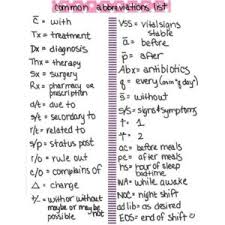 common abbreviations list
c̄ = with
Tx = treatment
Dx = diagnosis
Thx = therapy
Sx = surgery
Rx = pharmacy or
prescription
d/t = due to
2° = secondary to
r/t = related to
s/p = status post
r/o = rule out
c/o = complains of
△ = change
+/- = with or without
maybe or maybe not
possible
VSS = vital signs
stable
ā = before
p̄ = after
Abx = antibiotics
q = every (as in "q day")
s̄ = without
s/s = signs & symptoms
= 1
= 2
ac = before meals
pc = after meals
hs = hour of sleep
bedtime
WA = while awake
NOC = night shift
ad lib = as desired
EOS = end of shift